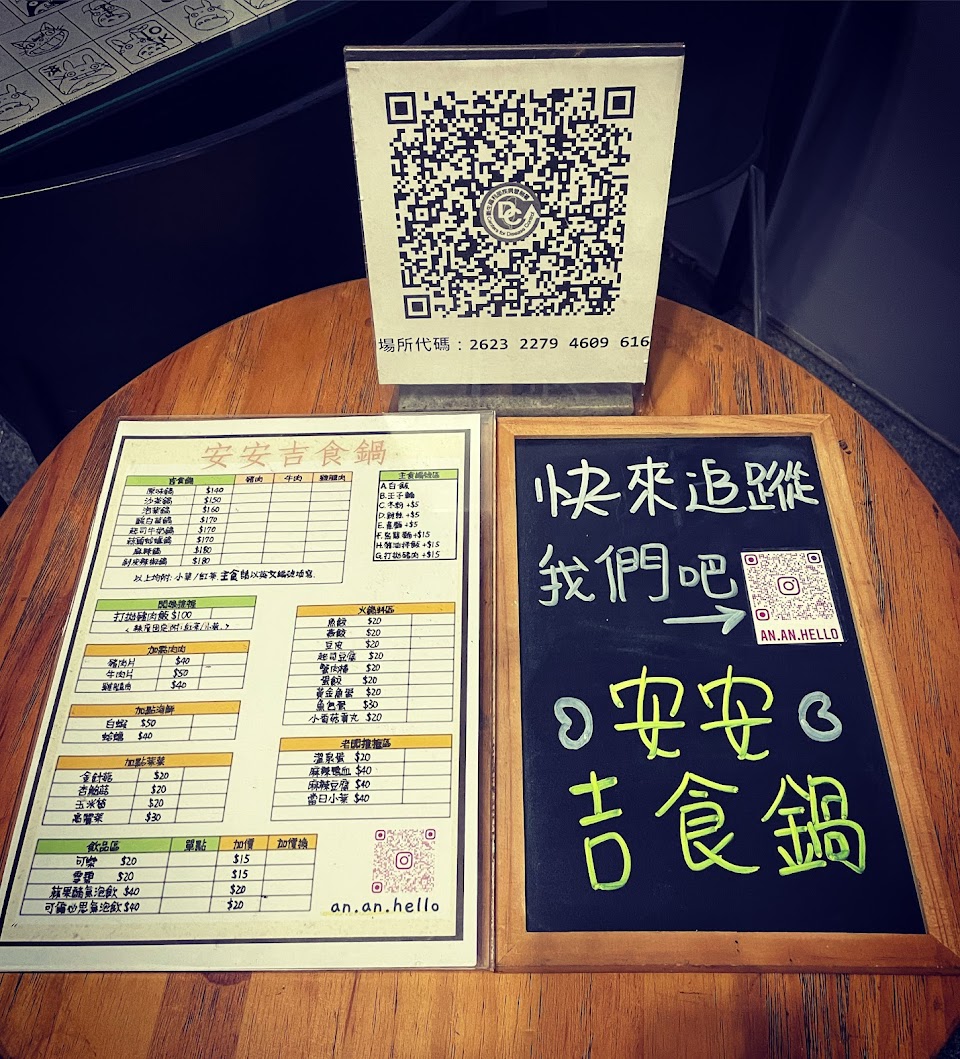 場所代碼：2623 2279 4609 616
安安吉食鍋
吉食鍋 豬肉 牛肉 雞腿肉
原味鍋 $140
沙茶鍋 $150
泡菜鍋 $160
酸白菜鍋 $170
起司牛奶鍋 $170
蒜頭蛤蠣鍋 $170
麻辣鍋 $180
剝皮辣椒鍋 $180
以上均附：小菜/紅茶.主食請以英文編號填寫.
主食編號區
A.白飯
B.王子麵
C.冬粉+$5
D.+$5
E.意麵+$5
F.烏龍麵+$15
H.豬油拌飯+$15
G.打拋豬肉+$15
打拋豬肉飯 $100
加點肉肉
豬肉片 $40
牛肉片 $50
雞腿肉 $40
加點海鮮
白蝦 $50
蛤蠣 $40
加點菜菜
金針菇 $20
杏鮑菇 $20
玉米筍 $20
高麗菜 $30
火鍋料區
魚餃 $20
燕餃 $20
豆皮 $20
起司豆腐 $20
蟹肉棒 $20
蛋餃 $20
黃金魚蛋 $20
魚包蛋 $30
小香菇貢丸 $20
老闆推推區
溫泉蛋 $20
麻辣鴨血 $40
麻辣豆腐 $40
當日小菜 $40
飲品區 單點 加價 加價換
可樂 $20 $15
雪碧 $20 $15
蘋果醋氣泡飲 $40 $20
可爾必思氣泡飲 $40 $20
an.an.hello
快來追蹤
我們吧
AN.AN.HELLO
安安
吉食鍋